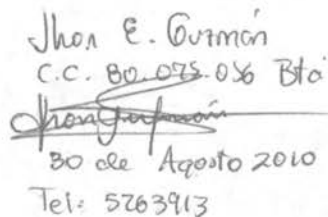 Jhon E. Guzmán
C.C. 80.075.056 Bta
Jhon Guzmán
30 de Agosto 2010
Tel: 5763913